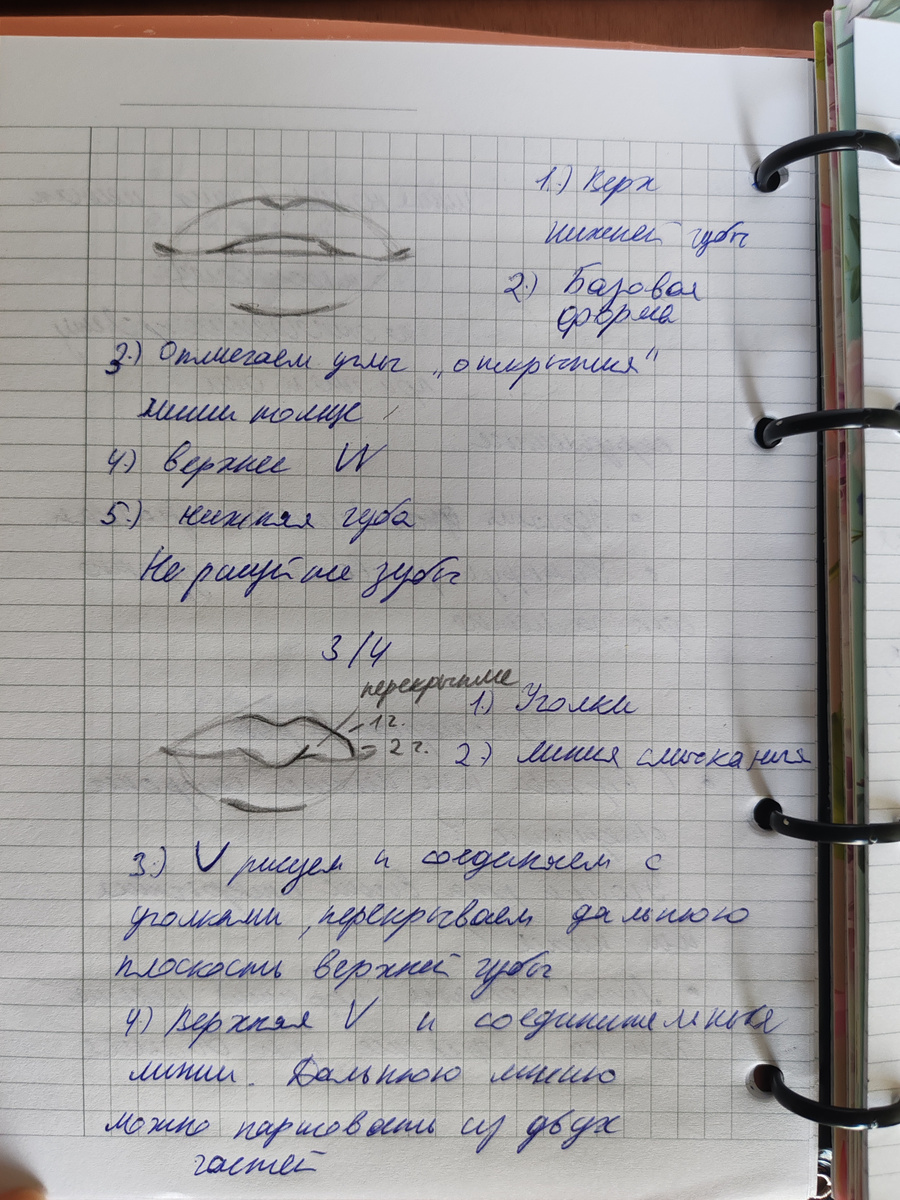 1.) Верх
нижней губы
2.) Базовая
форма
3.) Отмечаем углы „открытия"
линии толще
4.) верхнее W
5.) нижняя губа
Не рисуйте зубы
3/4
перекрытие
1 г.
2 г.
1.) Уголки
2.) линия смыкания
3.) V рисуем и соединяем с
уголками, перекрываем дальнюю
плоскость верхней губы
4) Верхняя V и соединительные
линии. Дальнюю линию
можно нарисовать из двух
частей